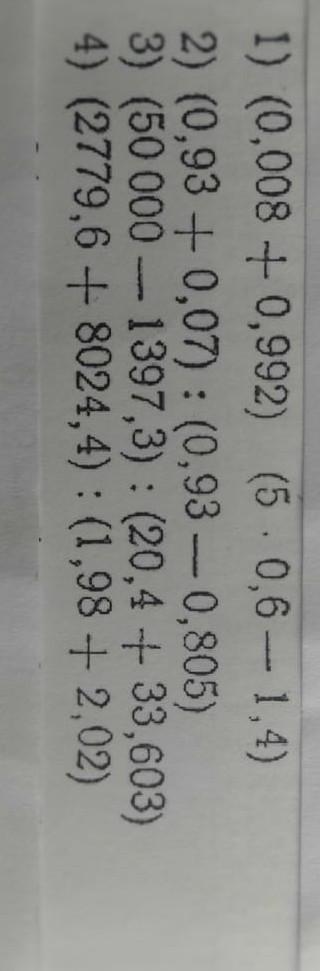 1) (0,008 + 0,992) (5 · 0,6 — 1,4)
2) (0,93 + 0,07) : (0,93 — 0,805)
3) (50 000 — 1397,3) : (20,4 + 33,603)
4) (2779,6 + 8024,4) : (1,98 + 2,02)